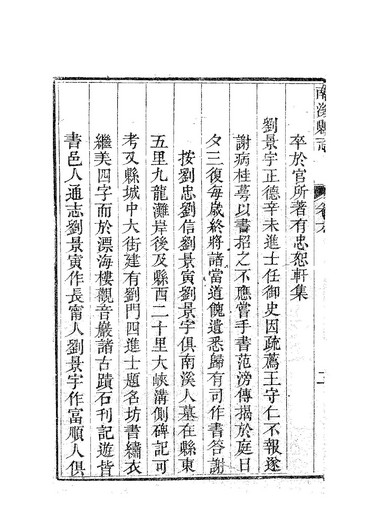 南溪縣志
卷六
卒於官所著有忠恕軒集
劉景宇正德辛未進士任御史因疏薦王守仁不報遂
謝病桂萼以書招之不應嘗手書范滂傳揭於庭日
夕三復每歲終將諸當道餽遺悉歸有司作書答謝
按劉忠劉信劉景寅劉景宇俱南溪人墓在縣東
五里九龍灘岸後及縣西二十里大峽溝側碑記可
考又縣城中大街建有劉門四進士題名坊書繡衣
繼美四字而於漂海樓觀音巖諸古蹟石刊記遊皆
書邑人通志劉景寅作長甯人劉景宇作富順人俱